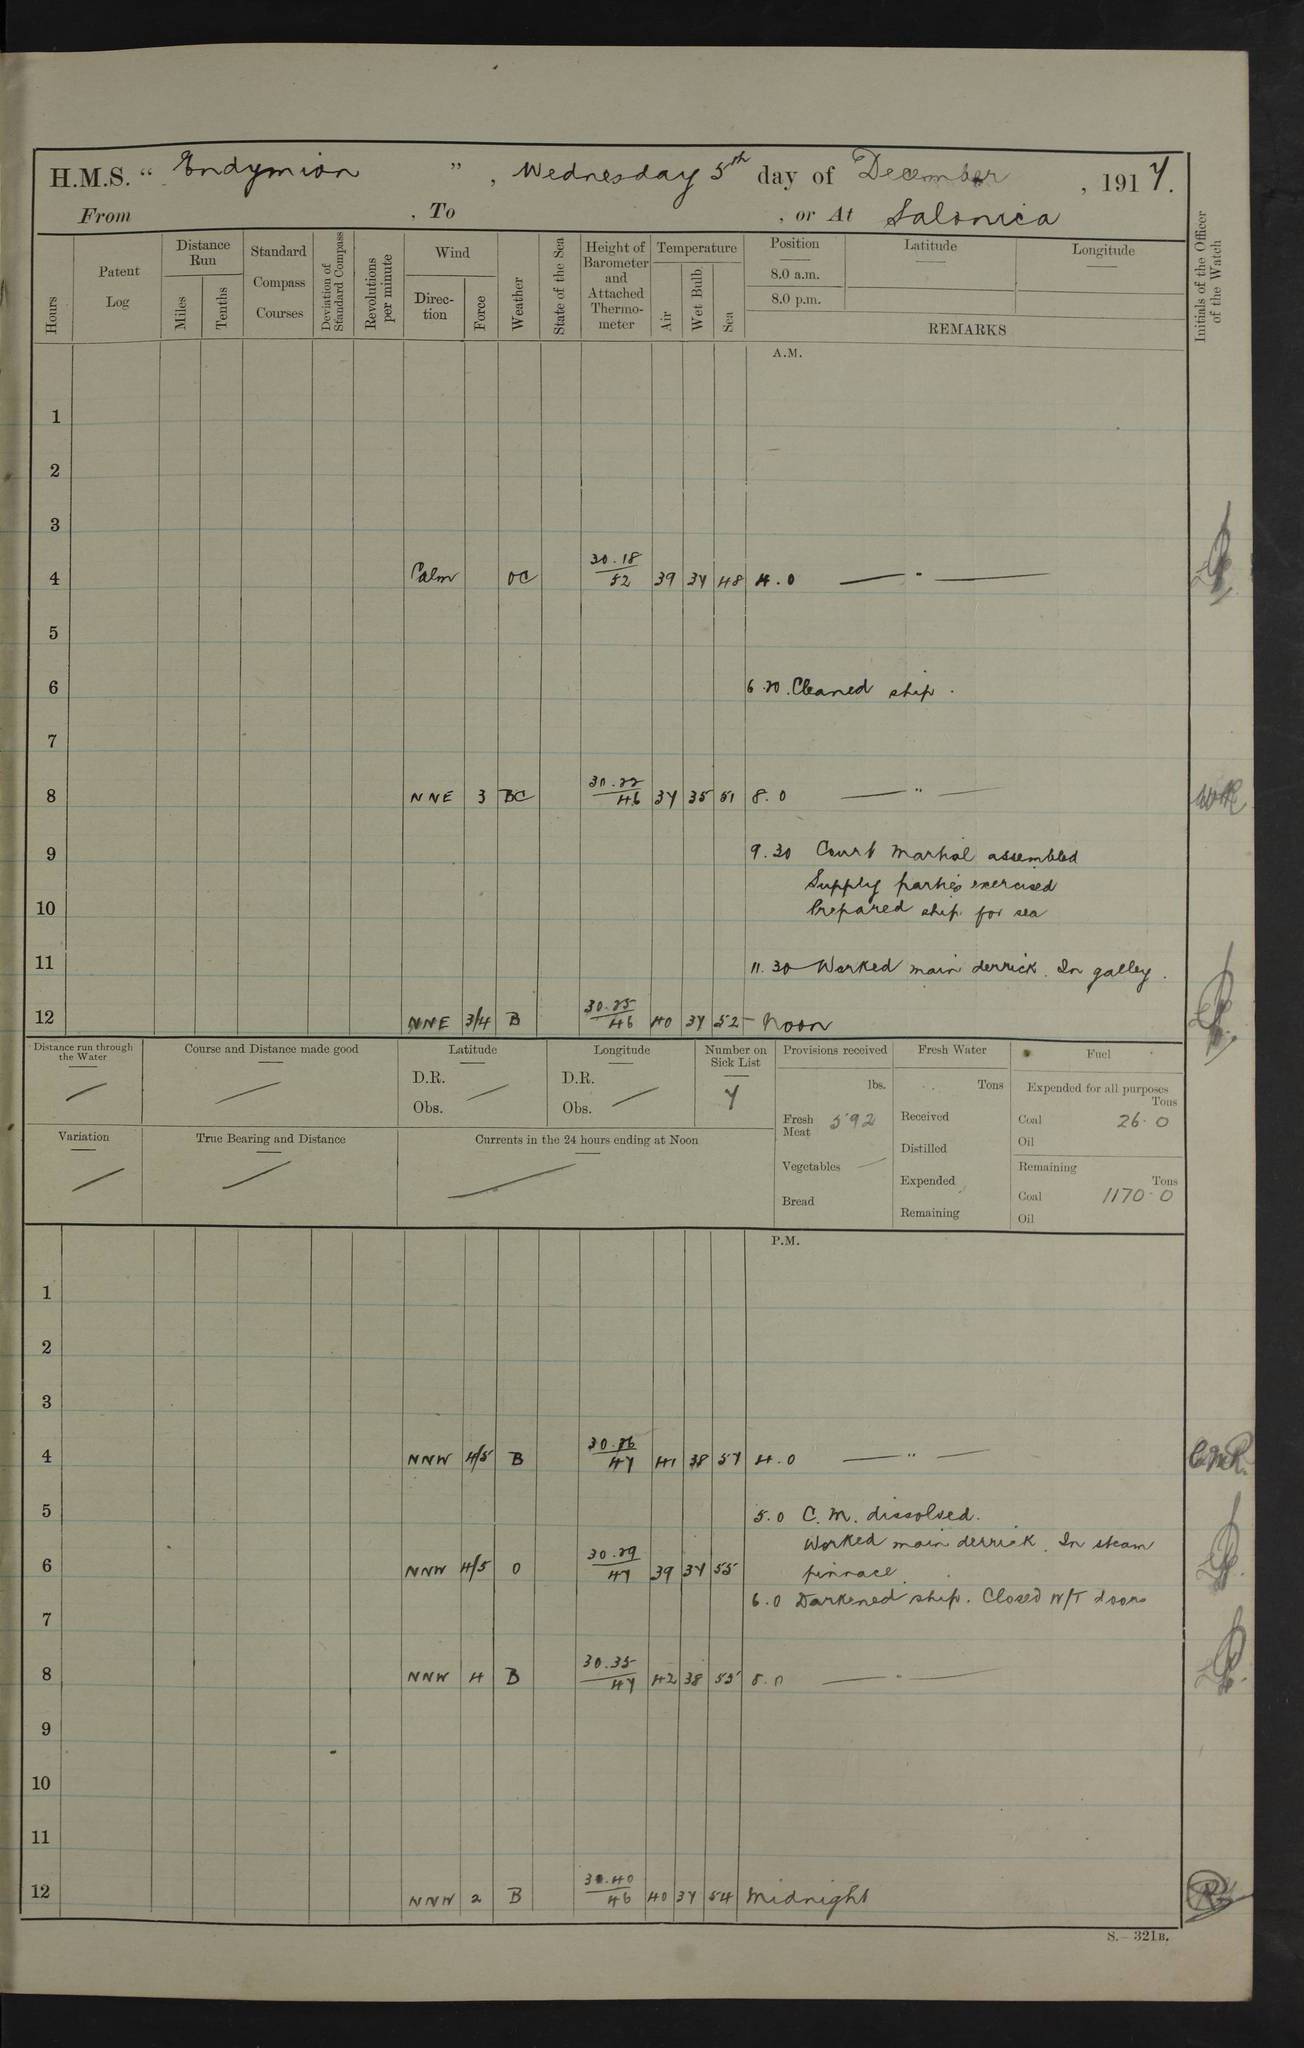 H.M.S. “ Endymion ” , Wednesday 5th day of December , 1917.
From , To , or At Salonica
Hours
Patent Log
Distance Run
Miles
Tenths
Standard Compass Courses
Deviation of Standard Compass
Revolutions per minute
Wind
Direc-tion
Force
Weather
State of the Sea
Height of Barometer and Attached Thermo-meter
Temperature
Air
Wet Bulb.
Sea
Position
8.0 a.m.
8.0 p.m.
Latitude
Longitude
REMARKS
Initials of the Officer of the Watch
A.M.
1
2
3
4 Calm OC 30.18/52 39 37 48 4.0 — " —
5
6 6.20. Cleaned ship.
7
8 NNE 3 BC 30.22/46 37 35 51 8.0 — " —
9 9.30 Court Martial assembled
Supply parties exercised
10 Prepared ship for sea
11 11.30 Worked main derrick. In galley.
12 NNE 3/4 B 30.25/46 40 37 52 Noon
Distance run through the Water
Course and Distance made good
Latitude
D.R.
Obs.
Longitude
D.R.
Obs.
Number on Sick List
7
Provisions received
lbs.
Fresh Meat 592
Vegetables —
Bread
Fresh Water
Tons
Received
Distilled
Expended
Remaining
Fuel
Expended for all purposes
Tons
Coal 26.0
Oil
Remaining
Tons
Coal 1170.0
Oil
Variation
True Bearing and Distance
Currents in the 24 hours ending at Noon
P.M.
1
2
3
4 NNW 4/5 B 30.26/47 41 38 57 4.0 — " —
5 5.0 C.M. dissolved.
Worked main derrick. In steam
6 NNW 4/5 O 30.29/47 39 37 55 pinnace.
6.0 Darkened ship. Closed W/T doors
7
8 NNW 4 B 30.35/47 42 38 55 8.0 — " —
9
10
11
12 NNW 2 B 30.40/46 40 37 54 Midnight
S.— 321B.